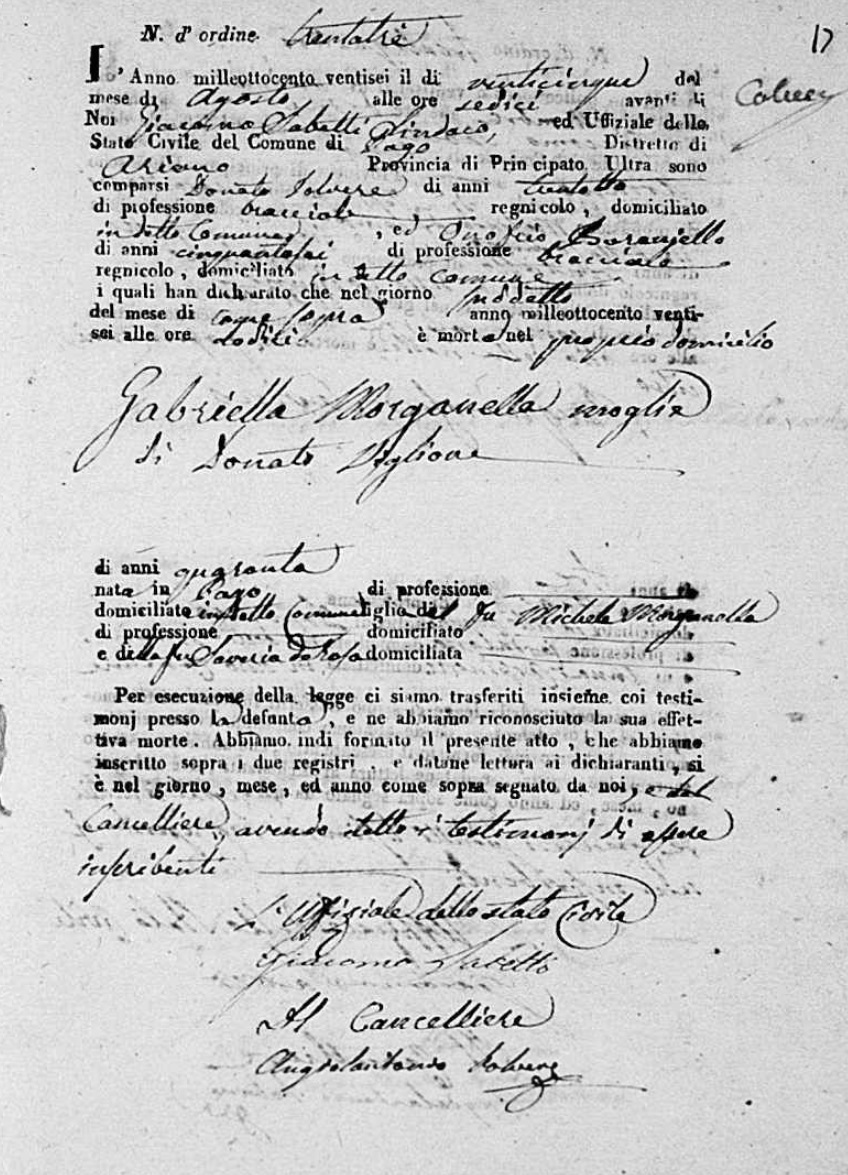 N. d'ordine trentatrè
17
L'Anno milleottocento ventisei il di venticinque del
mese di Agosto alle ore sedici avanti di
Noi Giacomo Sabetti Sindaco, ed Uffiziale dello
Stato Civile del Comune di Pago Distretto di
Ariano Provincia di Principato Ultra sono
comparsi Donato Solvere di anni trentotto
di professione bracciale, regnicolo, domiciliato
in detto Comune, ed Onofrio Boraniello
di anni cinquantasei di professione bracciale
regnicolo, domiciliato in detto comune
i quali han dichiarato che nel giorno suddetto
del mese di come sopra anno milleottocento venti-
sei alle ore dodici è morta nel proprio domicilio
Gabriella Morganella moglie
di Donato Viglione
di anni quaranta
nata in Pago di professione
domiciliato in detto Comune figlia del fu Michele Morganella
di professione domiciliato
e della fu Saveria de Rosa domiciliata
Per esecuzione della legge ci siamo trasferiti insieme coi testi-
monj presso la defunta, e ne abbiamo riconosciuto la sua effet-
tiva morte. Abbiamo indi formato il presente atto, che abbiamo
inscritto sopra i due registri, e datane lettura ai dichiaranti, si
è nel giorno, mese, ed anno come sopra segnato da noi, e dal
Cancelliere, avendo detto i testimonj di essere
inscribenti
L'Uffiziale dello stato Civile
Giacomo Sabetti
Il Cancelliere
Angiolantonio Solvere